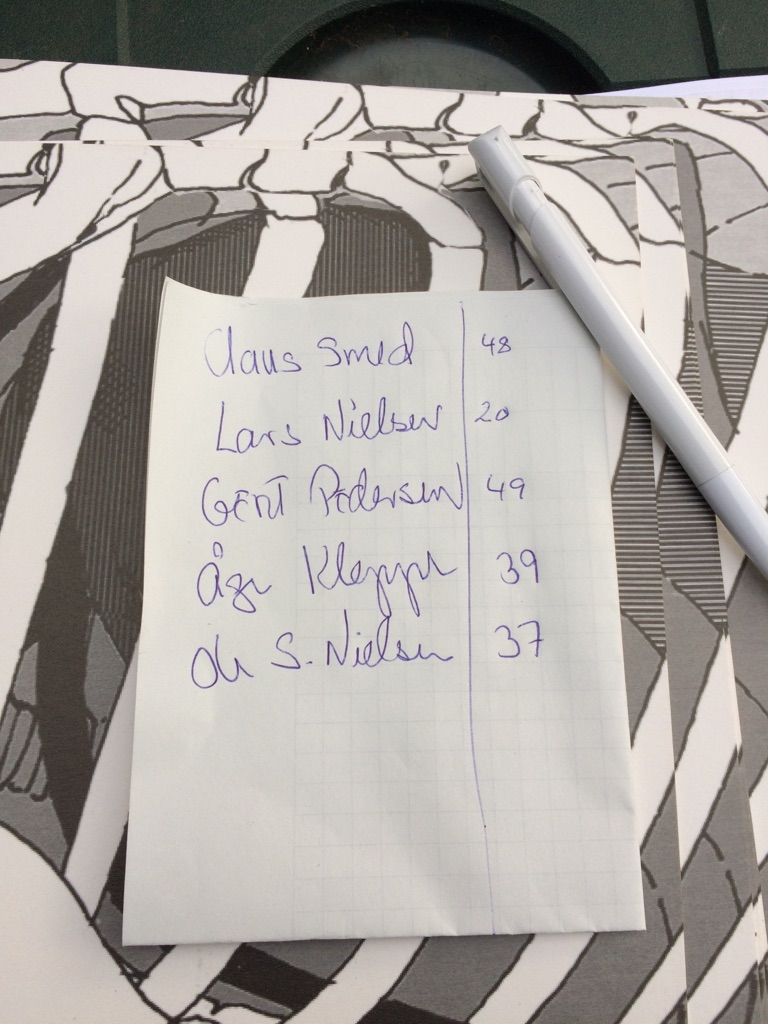 Claus Smed 48
Lars Nielsen 20
GERT Pedersen 49
Åge 39
Ole S. Nielsen 37